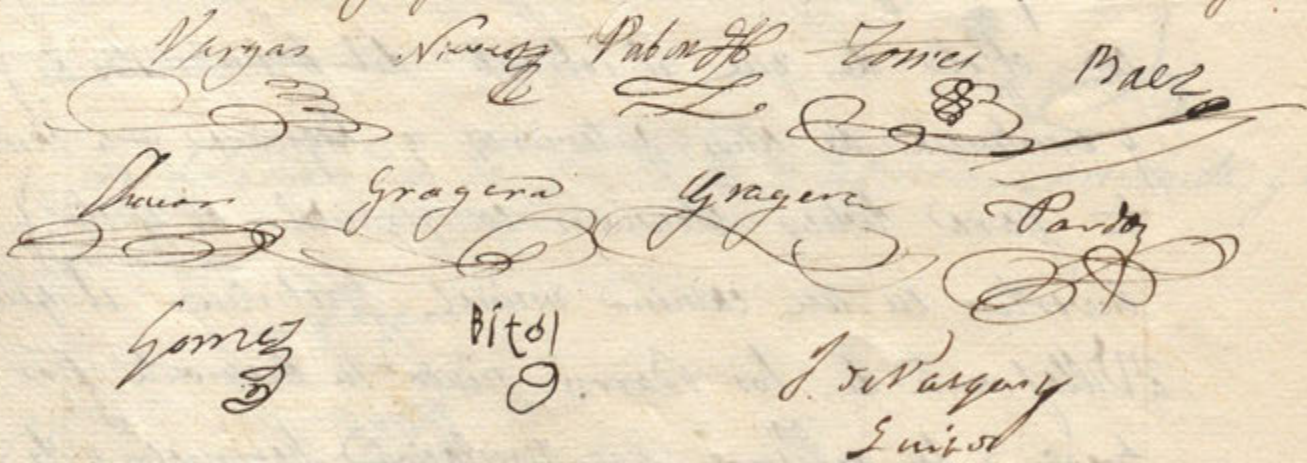 Vargas Pabon Torres Baez
Gragera Gragera Pardo
Gomez Bitol
J. de Vargas y